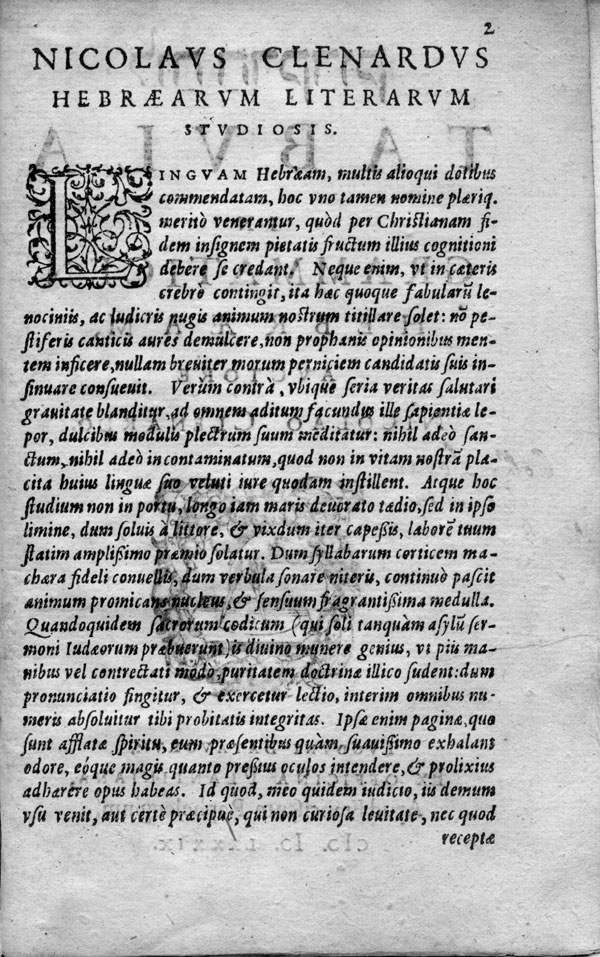 2
NICOLAVS CLENARDVS
HEBRÆARVM LITERARVM
STVDIOSIS.
LINGVAM Hebræam, multis alioqui dotibus
commendatam, hoc vno tamen nomine plæriq.
meritò venerantur, quòd per Christianam fi-
dem insignem pietatis fructum illius cognitioni
debere se credant. Neque enim, vt in cæteris
crebrò contingit, ita hæc quoque fabularũ le-
nociniis, ac ludicris nugis animum nostrum titillare solet: nõ pe-
stiferis canticis aures demulcere, non prophanis opinionibus men-
tem inficere, nullam breuiter morum perniciem candidatis suis in-
sinuare consueuit. Verùm contrà, vbique seria veritas salutari
grauitate blanditur, ad omnem aditum facundus ille sapientiæ le-
por, dulcibus modulis plectrum suum meditatur: nihil adeò san-
ctum, nihil adeò incontaminatum, quod non in vitam nostrã pla-
cita huius linguæ suo veluti iure quodam instillent. Atque hoc
studium non in portu, longo iam maris deuorato tædio, sed in ipso
limine, dum soluis à littore, & vixdum iter capeßis, laborẽ tuum
statim amplißimo præmio solatur. Dum syllabarum corticem ma-
chæra fideli conuellis, dum verbula sonare niteris, continuò pascit
animum promicans nucleus, & sensuum fragrantißima medulla.
Quandoquidem sacrorum codicum (qui soli tanquàm asylũ ser-
moni Iudæorum præbuerunt) is diuino munere genius, vt piis ma-
nibus vel contrectati modò, puritatem doctrinæ illico sudent: dum
pronunciatio fingitur, & exercetur lectio, interim omnibus nu-
meris absoluitur tibi probitatis integritas. Ipsæ enim paginæ, quo
sunt afflatæ spiritu, eum præsentibus quàm suauißimo exhalant
odore, eóque magis quanto preßius oculos intendere, & prolixius
adhærere opus habeas. Id quod, meo quidem iudicio, iis demum
vsu venit, aut certè præcipuè, qui non curiosa leuitate, nec quod
receptæ